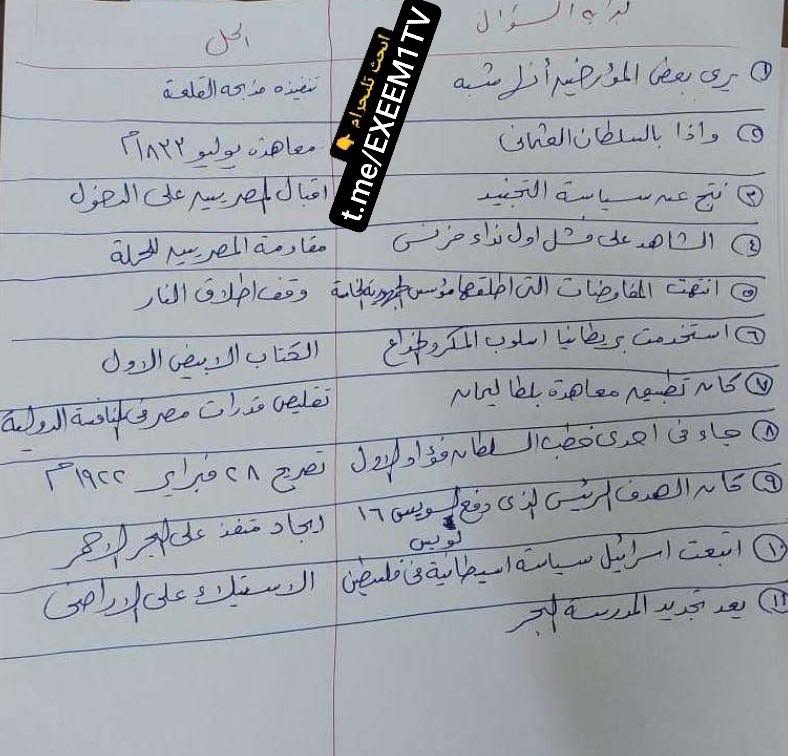 بداية السؤال
الحل
ابحث تليجرام 👇
t.me/EXEEM1TV
① يرى بعض المؤرخين أن شبه
تنفيذه مذبحة القلعة
② واذا بالسلطان العثمانى
معاهدة يوليو ١٨٣٣م
③ نتج عن سياسة التجنيد
اقبال المصريين على الدخول
④ الشاهد على فشل اول نداء فرنسى
مقاومة المصريين للحملة
⑤ انتهت المفاوضات التى اطلقها مؤسس الجمهورية الخامسة
وقف اطلاق النار
⑥ استخدمت بريطانيا اسلوب المكر والخداع
الكتاب الابيض الاول
⑦ كان تطبيق معاهدة بلطا ليمان
تقليص قدرات مصر فى المنافسة الدولية
⑧ جاء فى احدى خطب السلطان فؤاد الاول
تصريح ٢٨ فبراير ١٩٢٢م
⑨ كان الهدف الرئيس الذى دفع لويس ١٦
لويس
ايجاد منفذ على البحر الاحمر
⑩ اتبعت اسرائيل سياسة اسيطانية فى فلسطين
الاستيلاء على الاراضى
⑪ يعد تجديد المدرسة البحر